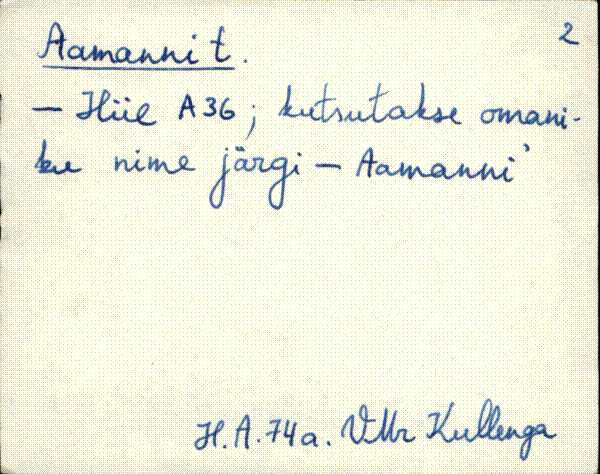 2
Aamanni t.
— Hiie A36; kutsutakse omani-
ku nime järgi — Aamanni'
H.A.74a. VMr Kullenga